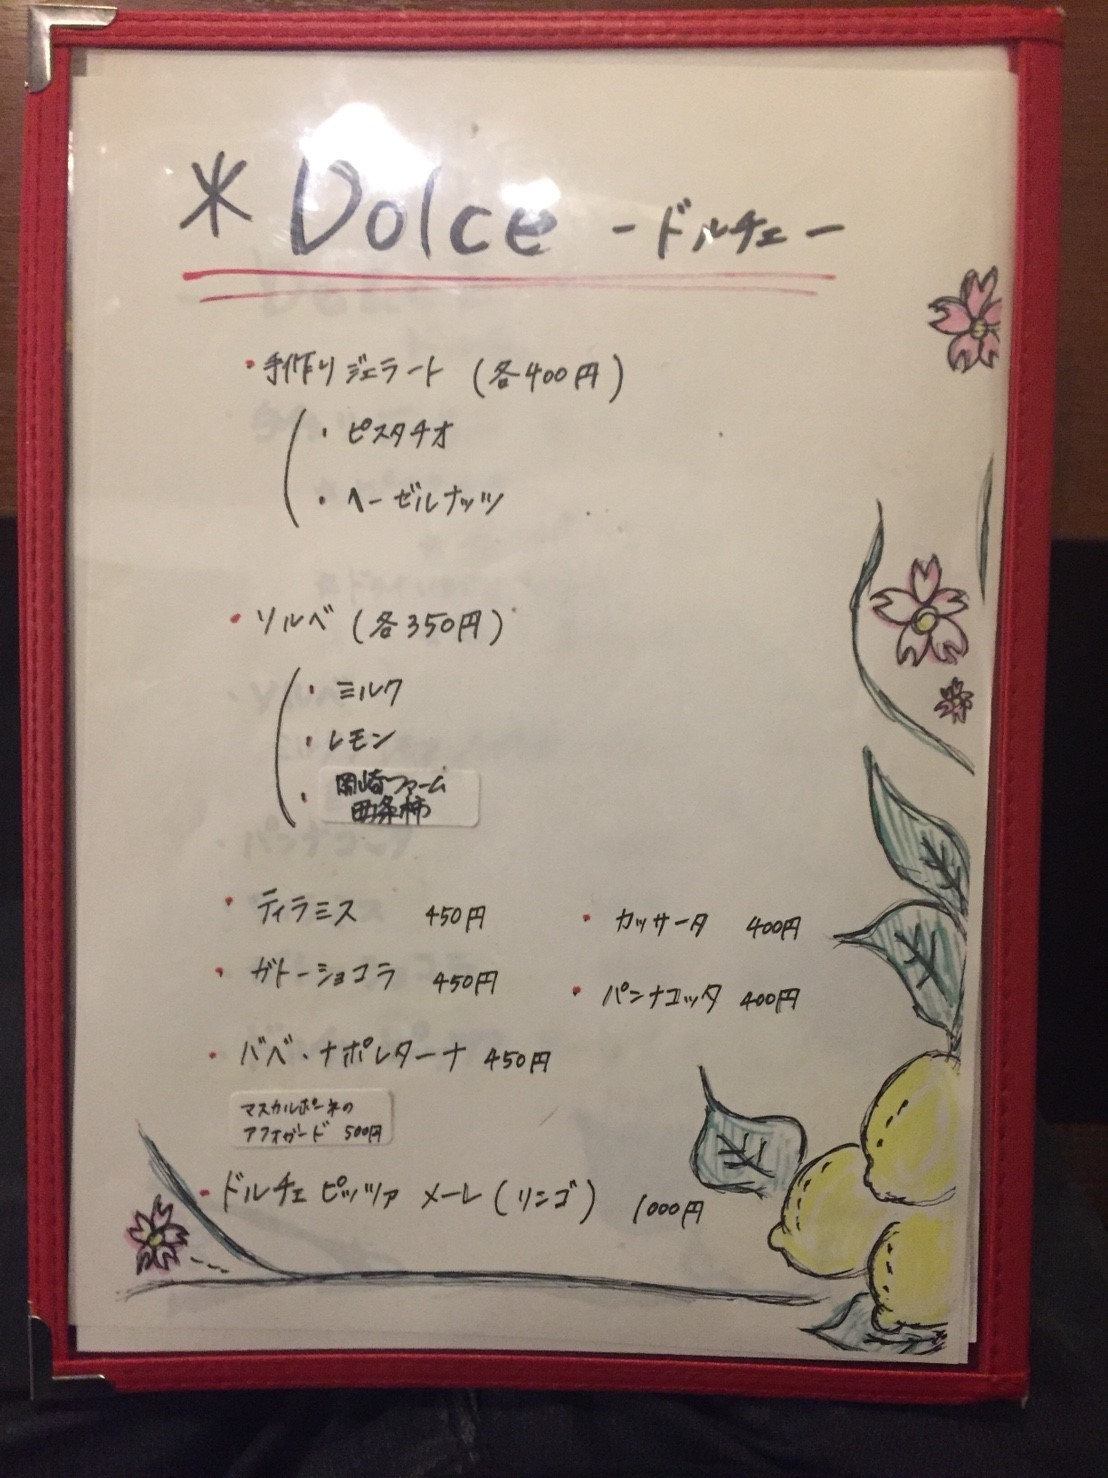 * Dolce -ドルチェ-
・手作りジェラート (各400円)
・ピスタチオ
・ヘーゼルナッツ
・ソルベ (各350円)
・ミルク
・レモン
・岡崎ファーム
西条柿
・ティラミス 450円
・カッサータ 400円
・ガトーショコラ 450円
・パンナコッタ 400円
・ババ・ナポレターナ 450円
マスカルポーネの
アフォガード 500円
・ドルチェ ピッツァ メーレ (リンゴ) 1000円